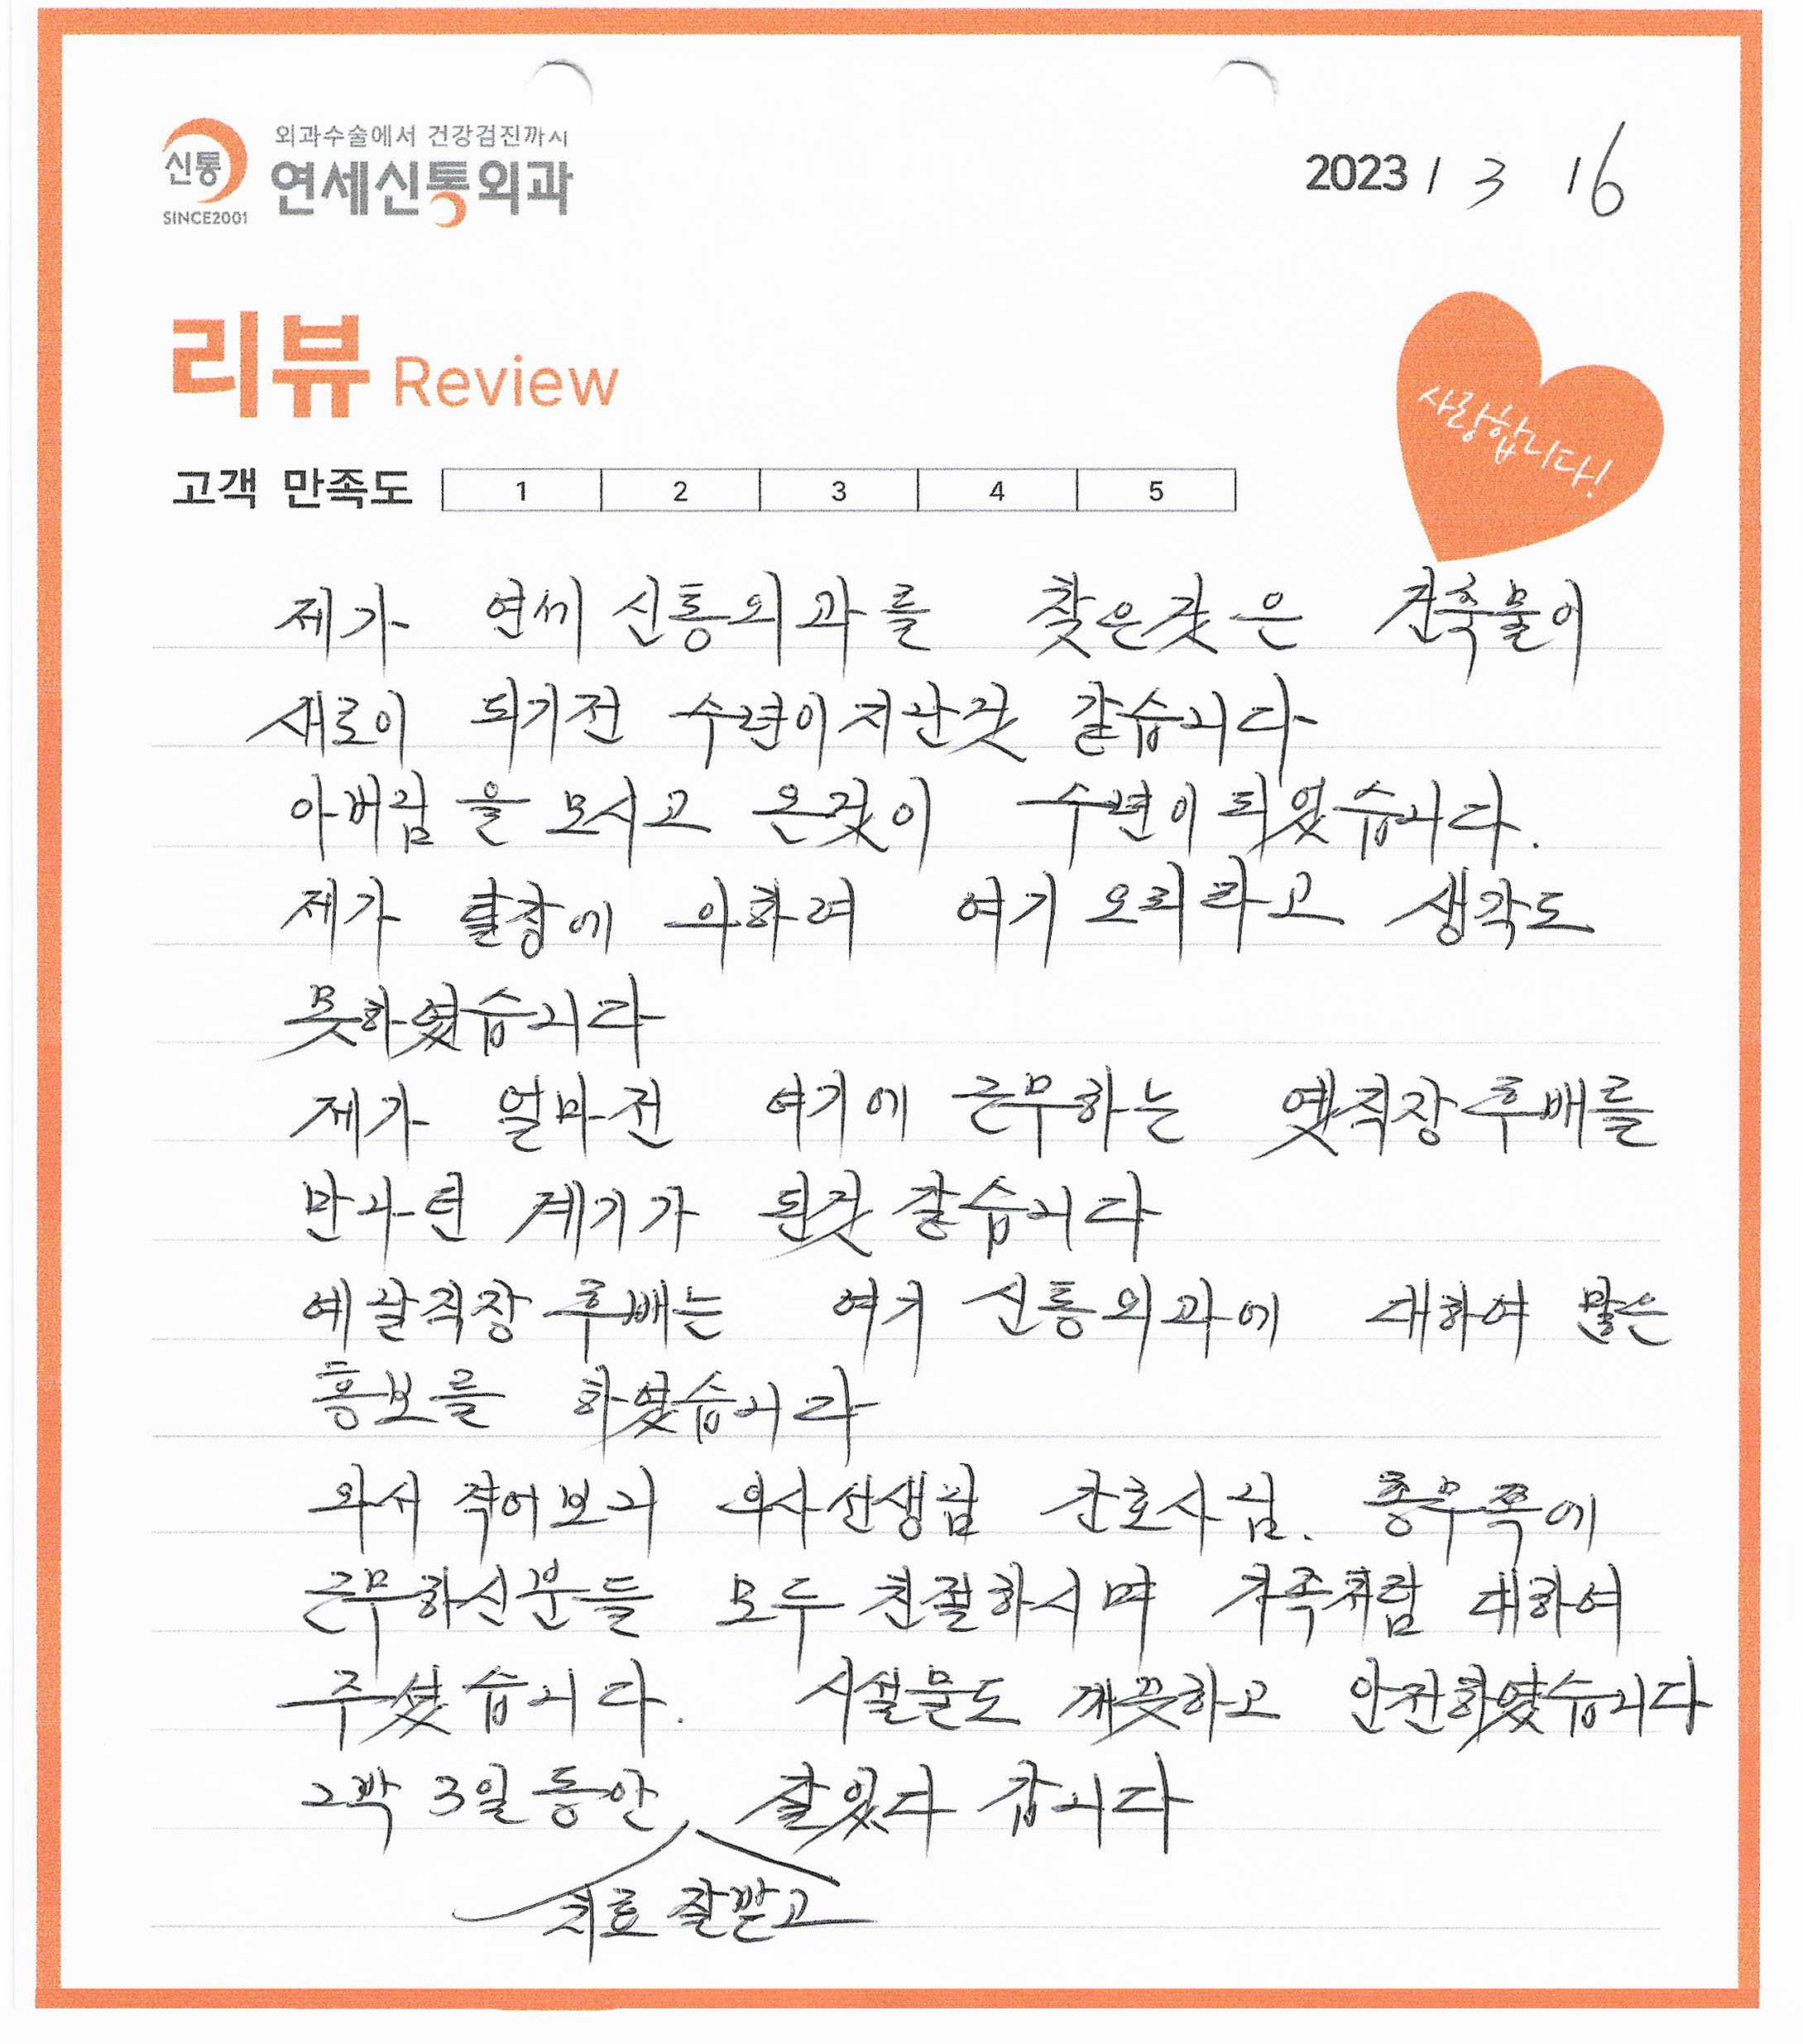 신통
SINCE2001
외과수술에서 건강검진까지
연세신통외과
2023 / 3 16
리뷰 Review
사랑합니다!
고객 만족도 1 2 3 4 5
제가 연세 신통외과를 찾은것은 건축물이
새로이 되기전 수년이 지난것 같습니다
아버님을 모시고 온것이 수년이 되었습니다.
제가 탈장에 의하여 여기 오리라고 생각도
못하였습니다
제가 얼마전 여기에 근무하는 옛직장후배를
만나면 계기가 된것 같습니다
예날직장후배는 여기 신통외과에 대하여 많은
홍보를 하였습니다
와서 격어보니 의사선생님 간호사님. 총무쪽에
근무하신분들 모두 친절하시며 가족처럼 대하여
주셨습니다. 시설물도 깨끗하고 안전하였습니다
2박 3일동안 잘있다 갑니다
치료 잘받고